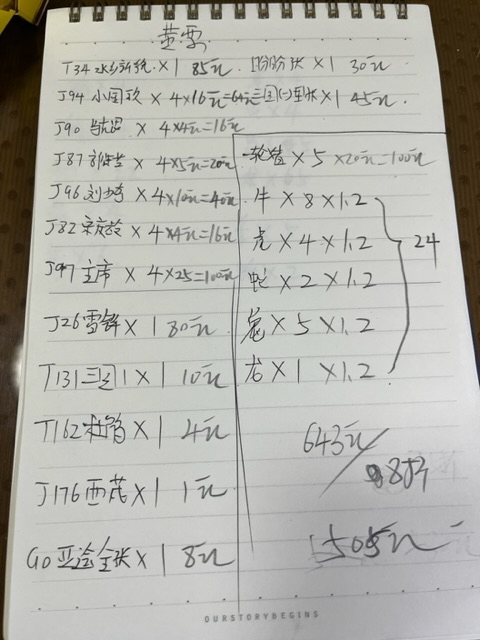 T34 水乡新纪 × 1 85元. 1盼盼张 × 1 30元
J94 小国玫 × 4×16元=64元 三国(一)型张 × 1 45元.
J90 × 4×4元=16元
J87 × 4×5元=20元
J96 刘少奇 × 4×10元=40元
J82 宋庆龄 × 4×4元=16元
J97 主席 × 4×25=100元
J26 雷锋 × 1 80元
T131 三国1 × 1 10元
T162 杜鹃 × 1 4元
J176 西芷 × 1 1元
G0 亚洽全张 × 1 8元
一轮猪 × 5 ×20元=100元
牛 × 8 × 1.2
虎 × 4 × 1.2
蛇 × 2 × 1.2
× 5 × 1.2
龙 × 1 × 1.2
24
643元
8折
505元
OURSTORYBEGINS